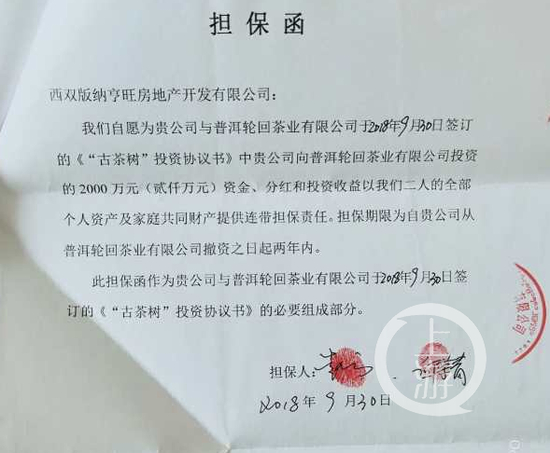 担保函
西双版纳亨旺房地产开发有限公司：
我们自愿为贵公司与普洱轮回茶业有限公司于2018年9月30日签订
的《“古茶树”投资协议书》中贵公司向普洱轮回茶业有限公司投资
的2000万元（贰仟万元）资金、分红和投资收益以我们二人的全部
个人资产及家庭共同财产提供连带担保责任。担保期限为自贵公司从
普洱轮回茶业有限公司撤资之日起两年内。
此担保函作为贵公司与普洱轮回茶业有限公司于2018年9月30日签
订的《“古茶树”投资协议书》的必要组成部分。
担保人：
2018年9月30日
有限公司
上游